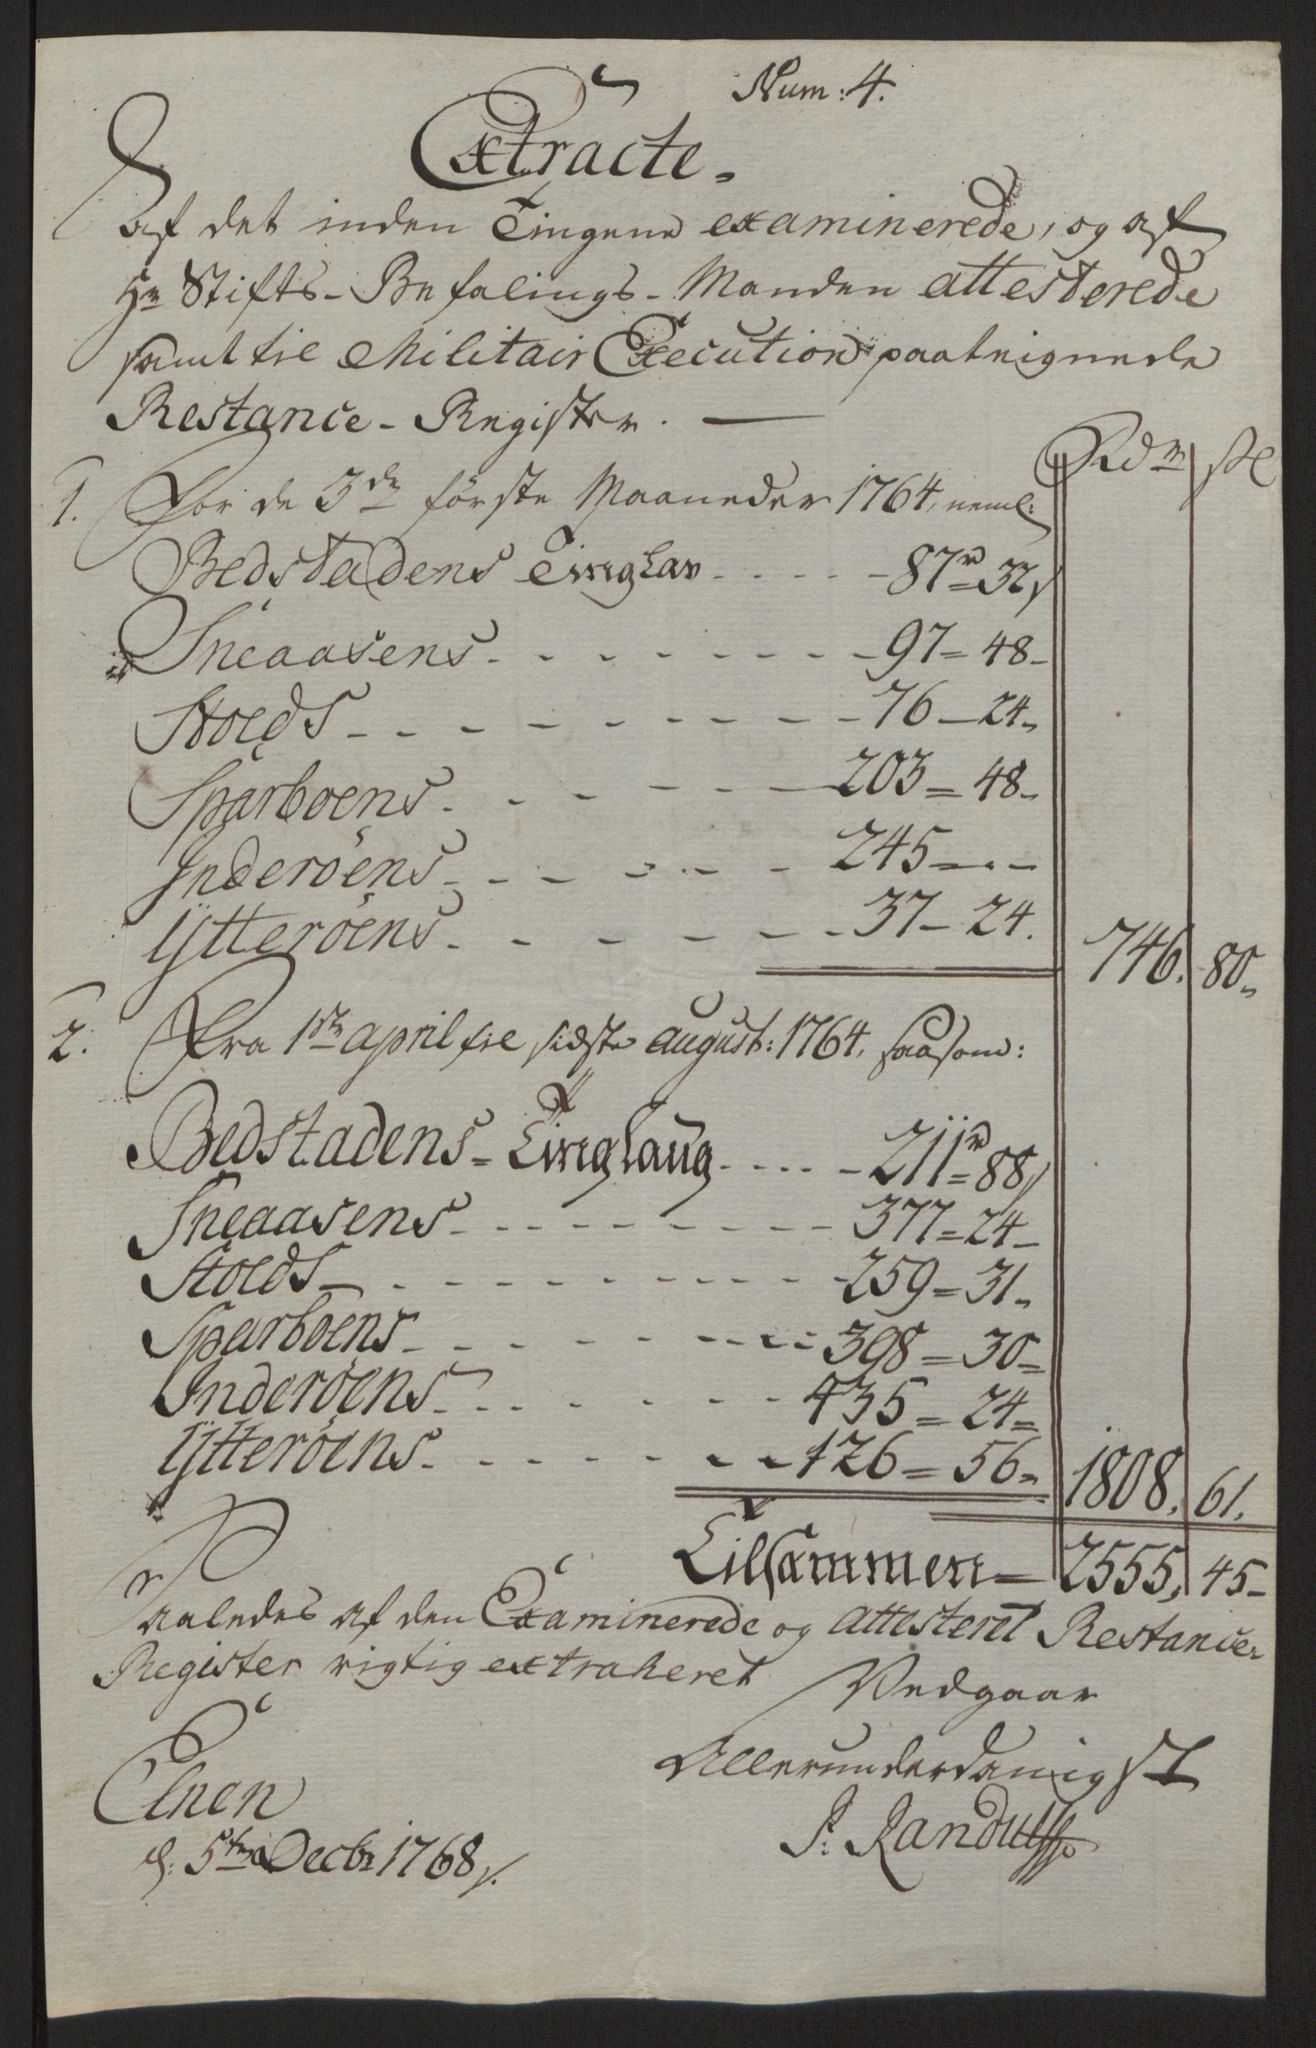 Num: 4.
Extracte
af det inden Tingene examinerede, og af
Hr Stifts-Befalings-Manden attesterede
samt til Militair Execution paateignede
Restance-Register.
Rdr | sk
1. For de 3de første Maaneder 1764, neml:
Bedstadens Tinglav - - - - - 87r=32s
Sneaasens - - - - - - - - 97=48-
Stoeds - - - - - - - - 76-24-
Sparboens - - - - - - 203=48-
Inderöens - - - - - - 245=-.-
Ytteröens - - - - - - 37-24. | 746. | 80-
2. Fra 1te april til sidste august: 1764, saasom:
Bedstadens-Tinglaug - - - - - 211r=88s
Sneaasens - - - - - - - - - 377=24-
Stoeds - - - - - - - - - - 259=31-
Sparboens - - - - - - - - 398=30-
Inderöens - - - - - - - 435=24=
Ytteröens - - - - - - - 126=56- | 1808. | 61.
Tilsammen - 2555, | 45-
Saaledes af den Examinerede og attesteret Restancer
Register rigtig extraheret Vedgaar
Allerunderdanigst
Elnen
d: 5te Decbr 1768.
P: Randulff